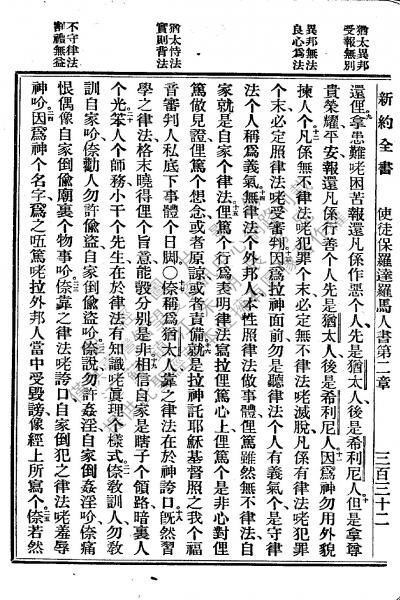 猶太異邦
受報無別
異邦無法
良心爲法
猶太恃法
實則背法
不守律法
割禮無益
新約全書 使徒保羅達羅馬人書第二章 三百三十二
還俚拿患難咾困苦報還凡係作惡个人先是猶太人後是希利尼人但是拿尊
貴榮耀平安報還凡係行善个人先是猶太人後是希利尼人因爲神勿用外貌
揀人个凡係無不律法咾犯罪个末必定無不律法咾滅脫凡係有律法咾犯罪
个末必定照律法咾受審判因爲拉神面前勿是聽律法个人有義氣个是守律
法个人稱爲義氣無不律法个外邦人本性照律法做事體俚篤雖然無不律法自
家就是自家个律法俚篤个行爲表明律法寫拉俚篤心上俚篤个是非心對俚
篤做見證俚篤个想念或者原諒或者責備就是拉神託耶穌基督照之我个福
音審判人私底下事體个日脚〇倷稱爲猶太人靠之律法在於神誇口旣然習
學之律法格末曉得俚个旨意能彀分別是非相信自家是瞎子个領路暗裏人
个光笨人个師務小干个先生在於律法有知識咾眞理个樣式倷敎訓人勿敎
訓自家吤倷勸人勿許偷盜自家倒偷盜吤倷說勿許姦淫自家倒姦淫吤倷痛
恨偶像自家倒偷廟裏个物事吤倷靠之律法咾誇口自家倒犯之律法咾羞辱
神吤因爲神个名字爲之㑚篤咾拉外邦人當中受毀謗像經上所寫个倷若然